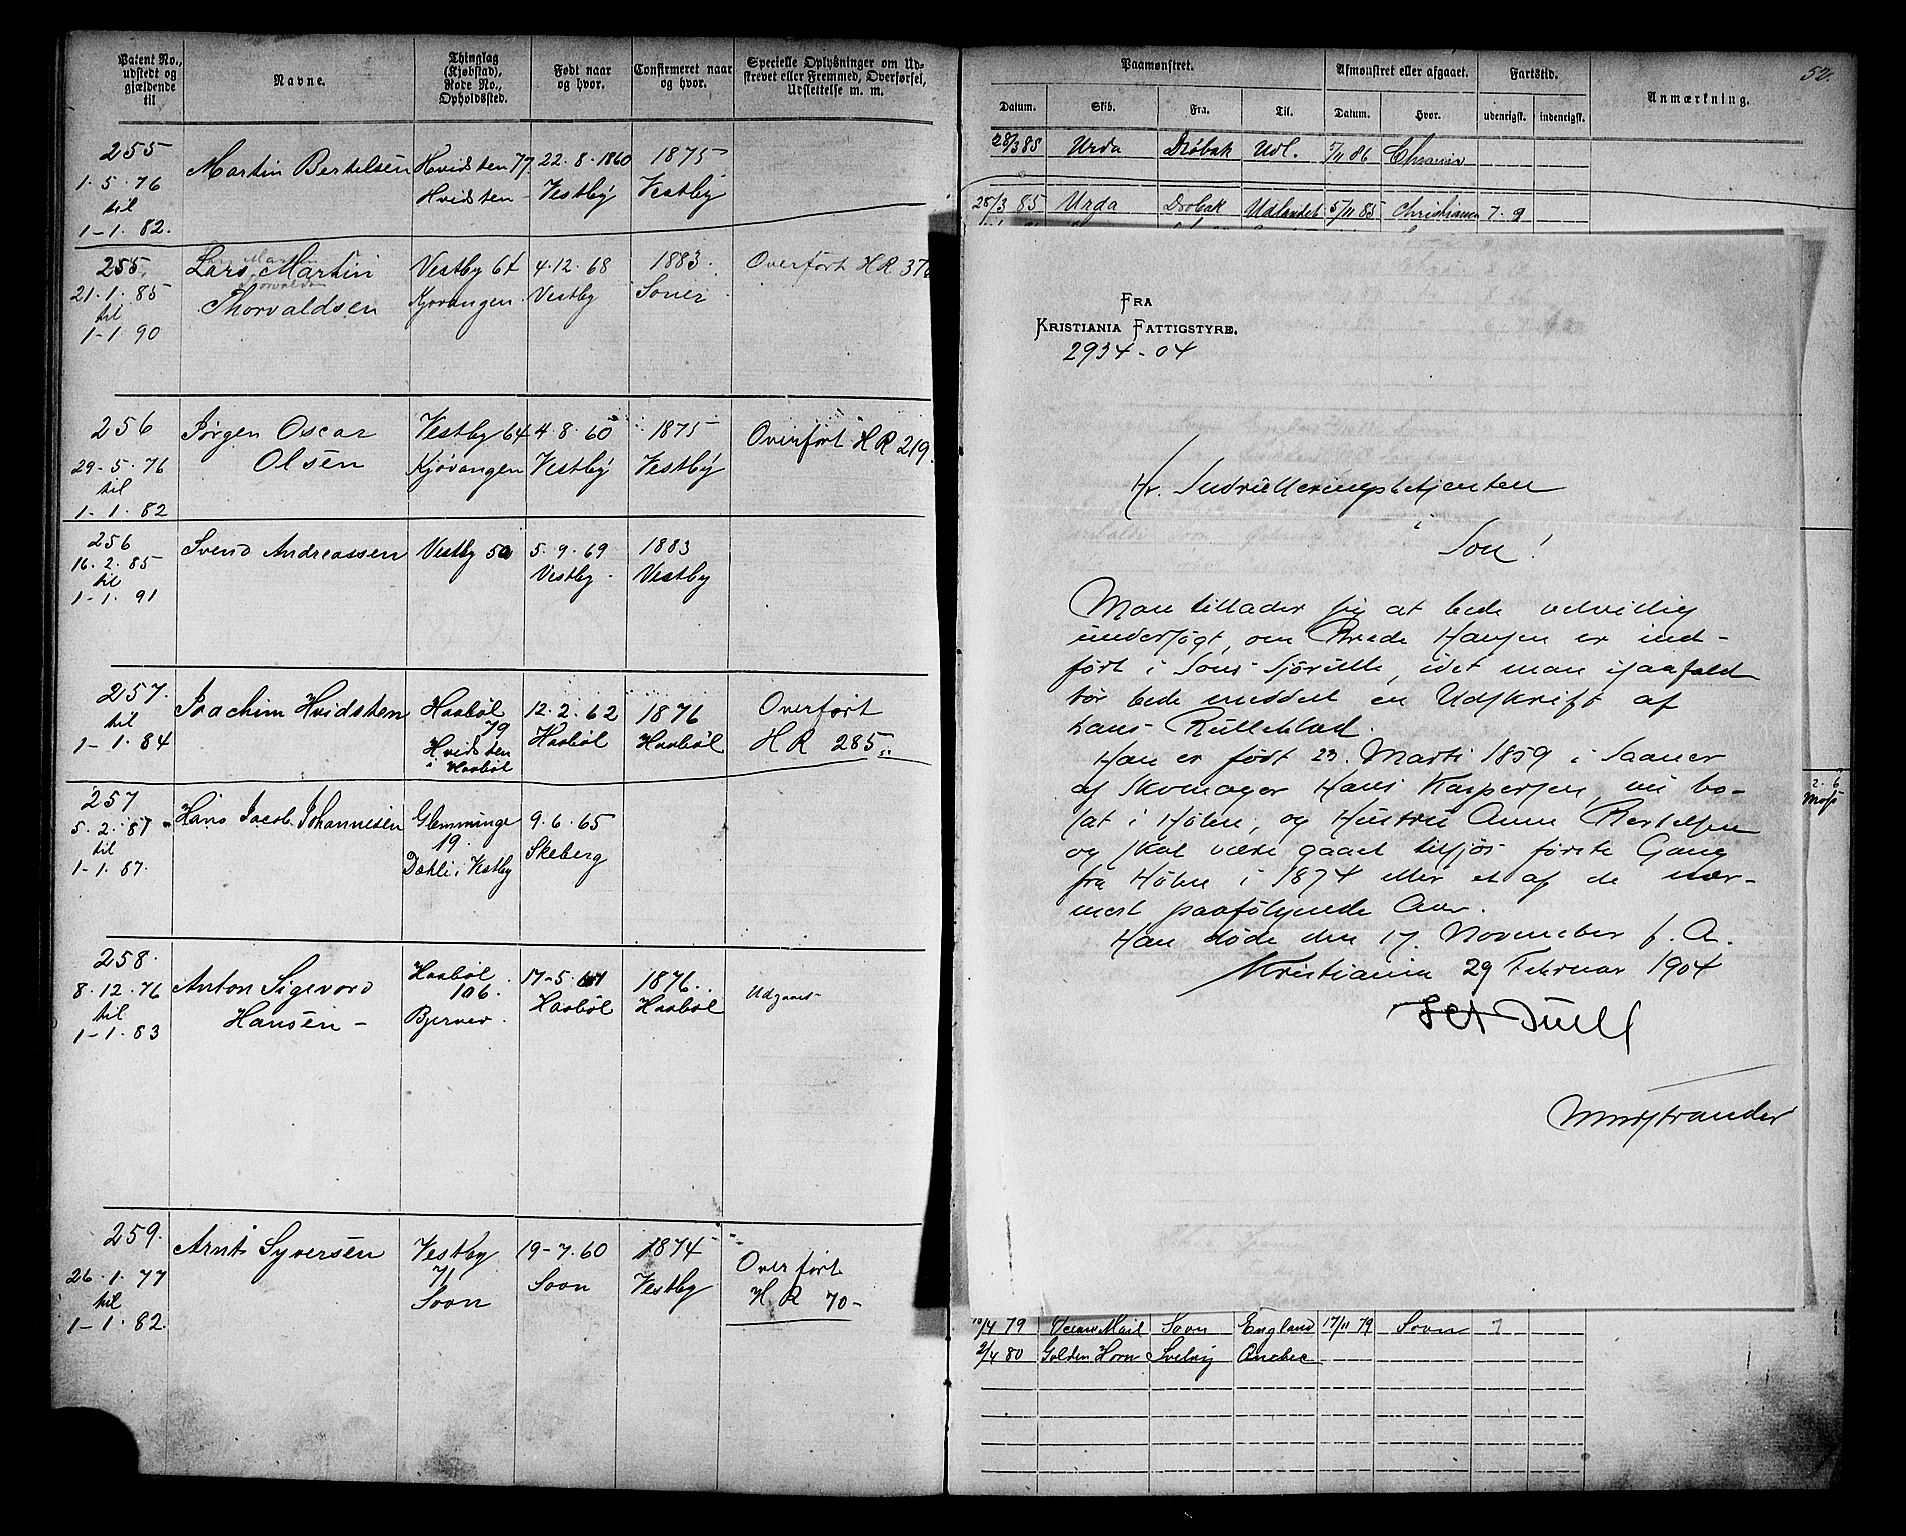 Patent No., udstedt og gjældende til
Navne.
Thinglag (Kjøbstad), Rode No., Opholdssted.
Født naar og hvor.
Confirmeret naar og hvor.
Specielle Oplysninger om Udskrevet eller Fremmed, Overførsel, Udslettelse m. m.
255
1.5.76
til
1-1.82.
Martin Bertelsen
Hvidsten 77
Hvidsten
22.8.1860
Vestby
1875
Vestby
255
21.1.85
til
1-1.90
Lars Martin
Thorvaldsen
Vestby 64
Kjøvangen
4.12.68
Vestby
1883.
Soner
Overført HR 376
256
29-5.76
til
1-1.82
Jørgen Oscar
Olsen
Vestby 64
Kjøvangen
4.8.60
Vestby
1875
Vestby
Overført HR 219.
256
16.2.85
til
1-1.91
Svend Andreassen
Vestby 50
5.9.69
Vestby.
1883
Vestby
257.
til
1-1.84
Joachim Hvidsten
Haabøl
79
Hvidsten
i Haabøl
12.2.62
Haabøl
1876
Haabøl
Overført
HR 285
257
5.2.81
til
1-1.87.
Hans Jacob Johannesen
Glemminge
19.
Dahli i Vestby
9.6.65
Skeberg
258.
8.12.76
til
1-1.83
Anton Sigvord
Hansen -
Haabøl
106.
Bjerner.
17-5.61
Haabøl
1876.
Haabøl
Udgaaet
259.
26.1.77
til
1-1.82.
Arnt Syversen
Vestby
71
Soon
19-7.60
Soon
1874
Vestby
Overført
HR 70-
52.
Paamønstret.
Afmønstret eller afgaaet.
Fartstid.
Anmærkning.
Datum.
Skib.
Fra.
Til.
Datum.
Hvor.
udenrigsk.
indenrigsk.
28/3 85 Urda Drøbak Udl. 7/11 86
28/3 85 Urda Drøbak Udlandet 5/11 85 Christiania 7.9
FRA
KRISTIANIA FATTIGSTYRE.
2934-04
Hr. Indrulleringsbetjenten
i
Son!
Man tillader sig at bede velvillig
undersøgt, om Brede Hansen er ind-
ført i Sons Sjørulle, idet man isaafald
bør bede meddelt en Udskrift af
hans Rulleblad.
Han er født 23. Marti 1859 i Saaner
af Skomager Hans Kaspersen, nu bo-
sat i Hølen, og Hustru Anne Bertelsen
og skal være gaaet tilsjøs første Gang
fra Hølen i 1874 eller et af de nær-
mest paafølgende Aar.
Han døde den 17. November f. A.
Kristiania 29 Februar 1904
2. 6
Moss
10/4 79 Mail Soon England 17/11 79 Soon 7
2/4 80 Golden Horn Svelvig Quebec